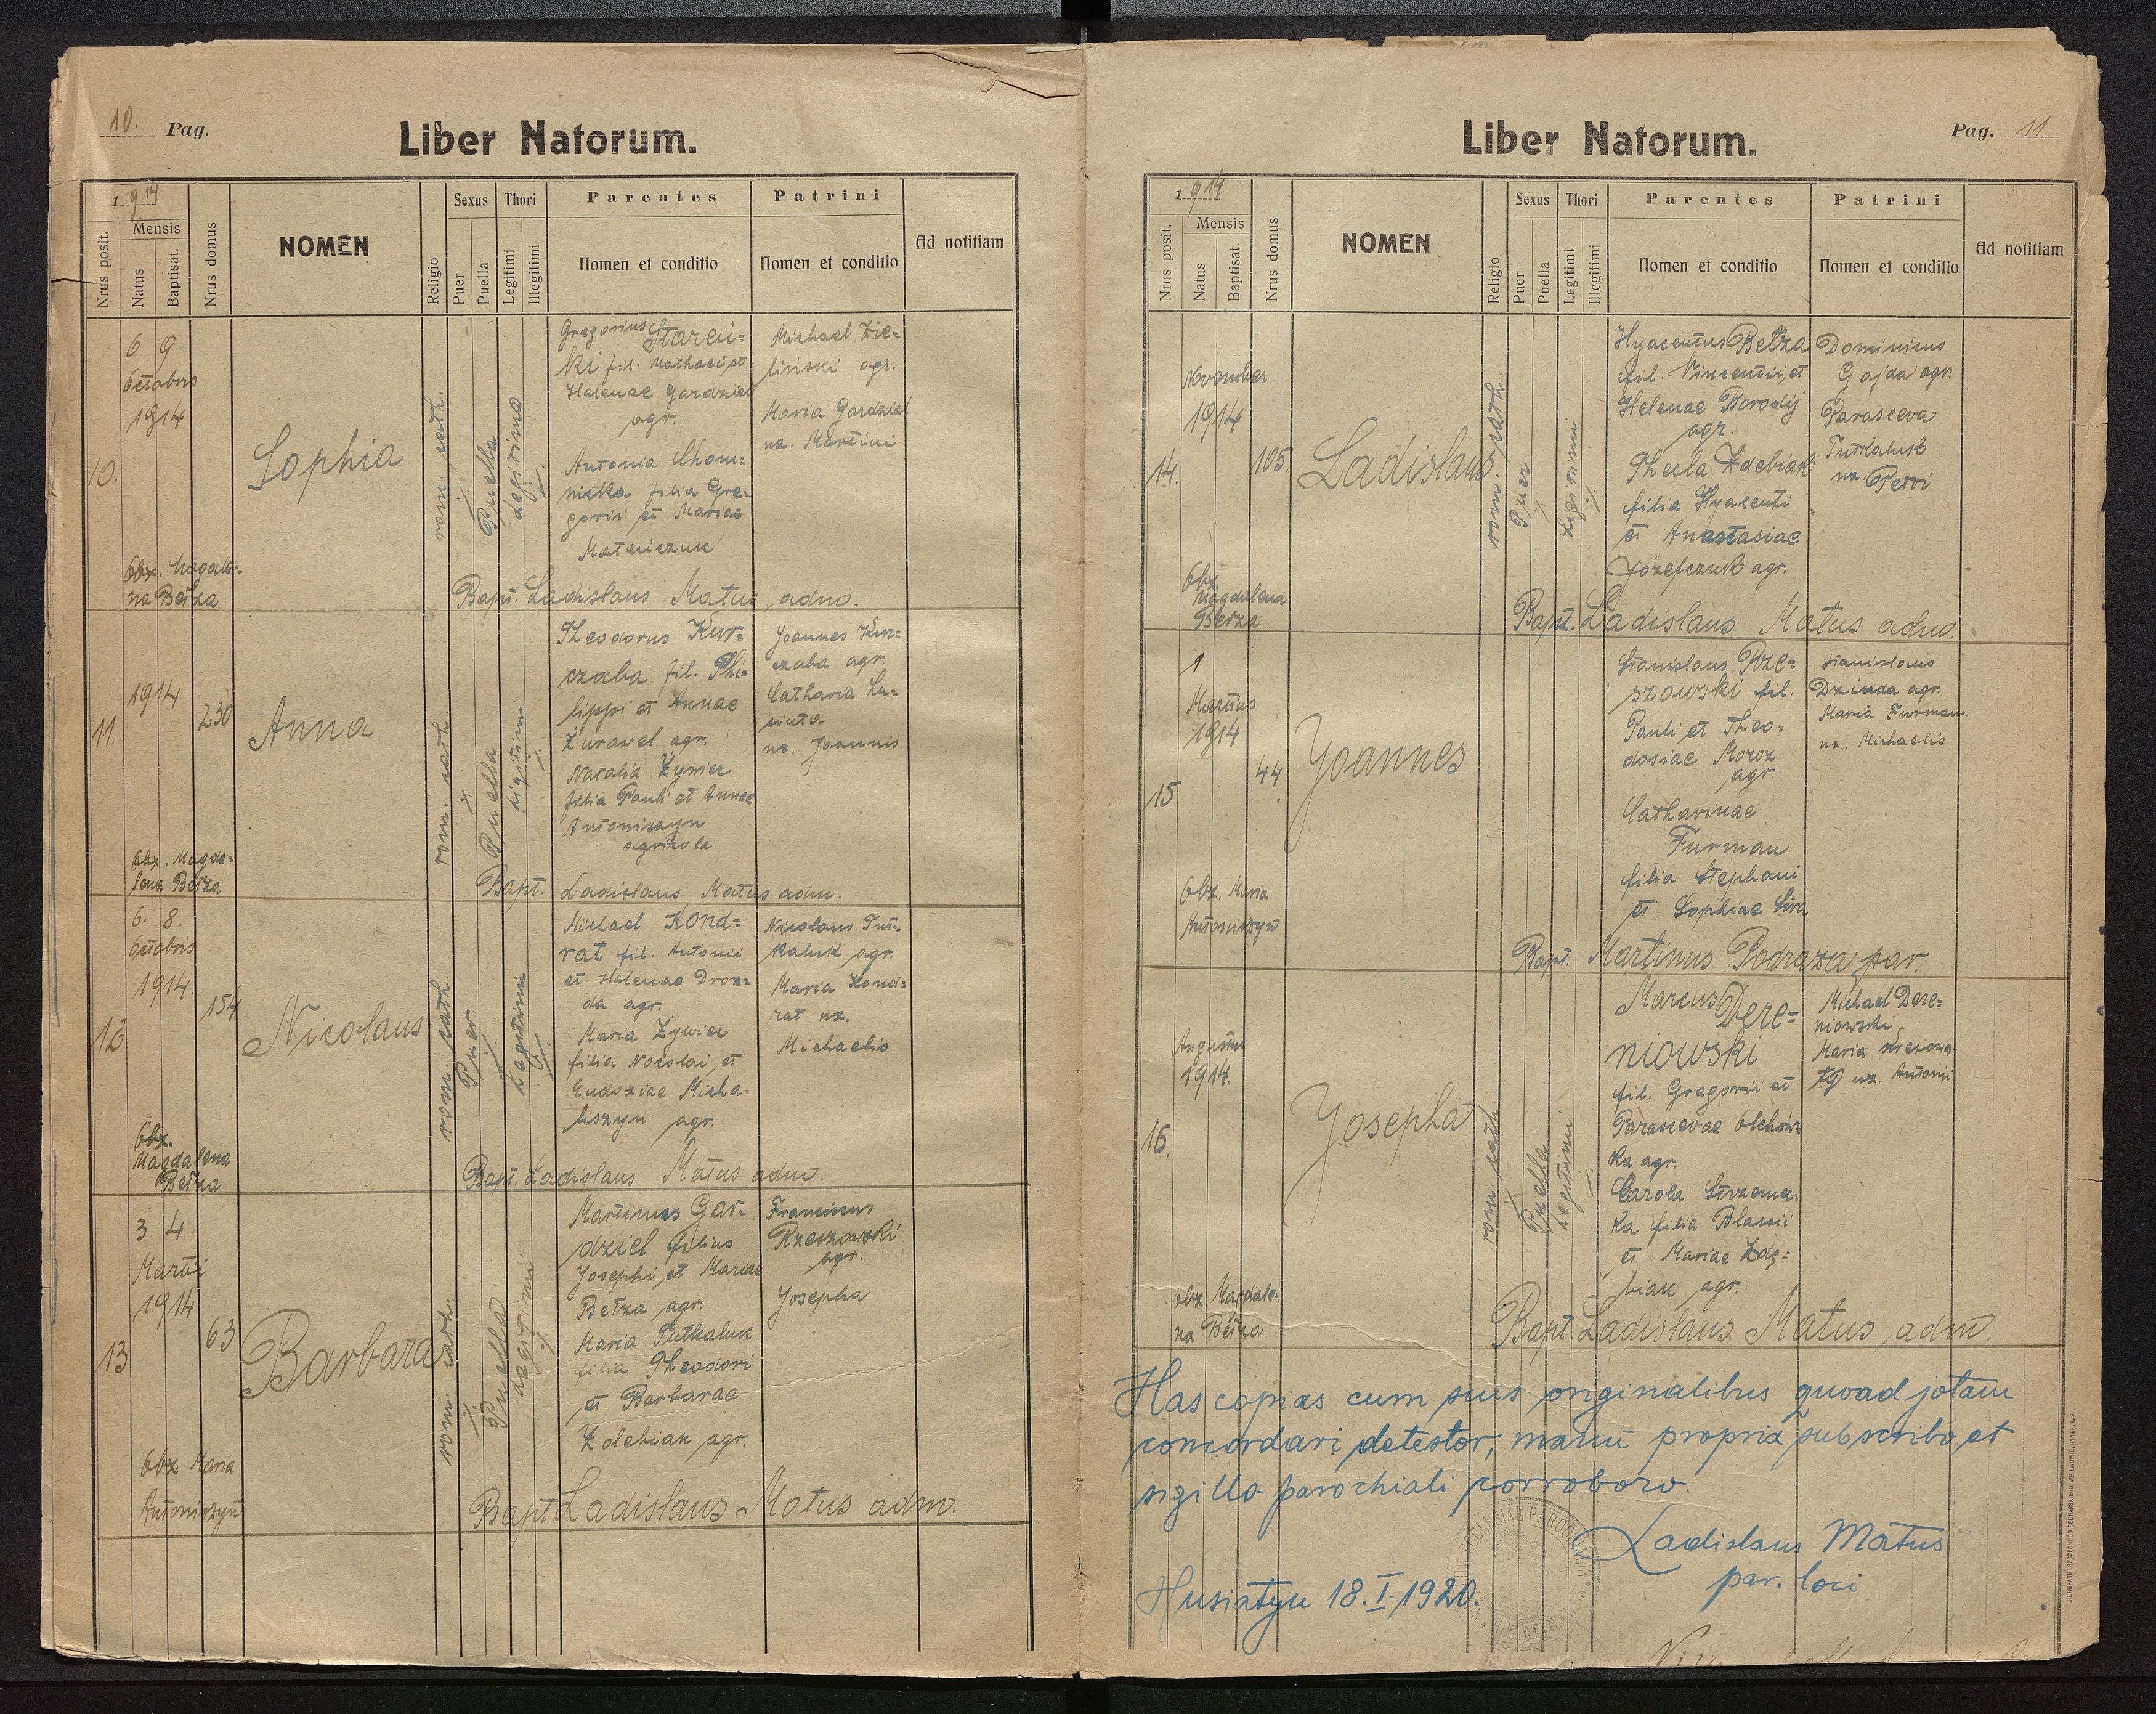 10. Pag.
Liber Natorum.
1914
Nrus posit.
Mensis
Natus
Baptisat.
Nrus domus
NOMEN
Religio
Sexus
Puer
Puella
Thori
Legitimi
Illegitimi
Parentes
Nomen et conditio
Patrini
Nomen et conditio
Ad notitiam
10.
6 9
Octobris
1914
Sophia
rom. cath.
Puella
Legitimo
Gregorius Starci=
ki fil. Mathaei et
Helenae Gardziel
agr.
Antonia Chom=
nicka filia Gre=
gorii et Mariae
Mateiczuk
Michael Zie=
linski agr.
Maria Gardziel
ux. Martini
Obx. Magdale-
na Betza
Bapt. Ladislaus Matus, adm.
11.
1914
230
Anna
rom. cath.
Puella
Legitimi
Theodorus Kur=
czaba fil. Phi=
lippi et Annae
Zurawel agr.
Natalia Zywicz
filia Pauli et Annae
Antoniszyn
agrikola
Joannes Kur=
czaba agr.
Catharia
ux. Joannis
Obx. Magda=
lena Betza
Bapt. Ladislaus Matus adm.
12
6. 8.
Octobris
1914.
154
Nicolaus
rom. cath.
Puer.
Legitimi
Michael Kond=
rat fil. Antonii
et Helenae Droz=
da agr.
Maria Zywicz
filia Nicolai, et
Eudoxiae Micha-
liszyn agr.
Nicolaus Tut=
kaluk agr.
Maria Kond=
rat ux.
Michaelis
Obx.
Magdalena
Betza
Bapt. Ladislaus Matus adm.
13
3 4
Martii
1914
63
Barbara
rom. cath.
Puella
Legitimi
Martinus Gar=
dziel filius
Josephi et Mariae
Betza agr.
Maria Tutkaluk
filia Theodori
et Barbarae
Zdebiak agr.
Franciscus
Rzeszowski
agr.
Josepha
Obx Maria
Antoniszyn
Bapt Ladislaus Matus adm.
Liber Natorum.
Pag. 11
1914.
Nrus posit.
Mensis
Natus
Baptisat.
Nrus domus
NOMEN
Religio
Sexus
Puer
Puella
Thori
Legitimi
Illegitimi
Parentes
Nomen et conditio
Patrini
Nomen et conditio
Ad notitiam
14.
November
1914
105.
Ladislaus
rom. cath.
Puer
Legitimi
Hyacentus Betza
fil. Vincentii, et
Helenae Borodij
agr.
Thecla Zdebiak
filia Hyacenti
et Anastasiae
Józefczuk agr.
Dominicus
Gajda agr.
Parasceva
Tutkaluk
ux. Petri
Obx.
Magdalena
Betza
Bapt. Ladislaus Matus adm.
15
1
Martius
1914
44
Joannes
Stanislaus Rze=
szowski fil.
Pauli et Theo=
dosiae Moroz
agr.
Catharinae
Furman
filia Stephani
et Sophiae
Stanislaus
agr.
Maria Furman
ux. Michaelis
Obx. Maria
Antoniszyn
Bapt. Martinus Podraza par.
16.
Augustus
1914.
Josepha
rom. cath.
Puella
Legitimi
Marcus Dere=
niowski
fil. Gregorii et
Parascevae Olchów=
ka agr.
Carola
filia Blasii
et Mariae Zdę=
biak agr.
Michael Dere=
niowski,
Maria
ux. Antonii
obx. Magdale-
na Betza
Bapt Ladislaus Matus adm.
Has copias cum suis originalibus quoad jotam
concordari detestor, manu propria subscribo et
sigillo parochiali corroboro.
Ladislaus Matus
par. loci
Husiatyn 18. I. 1920.